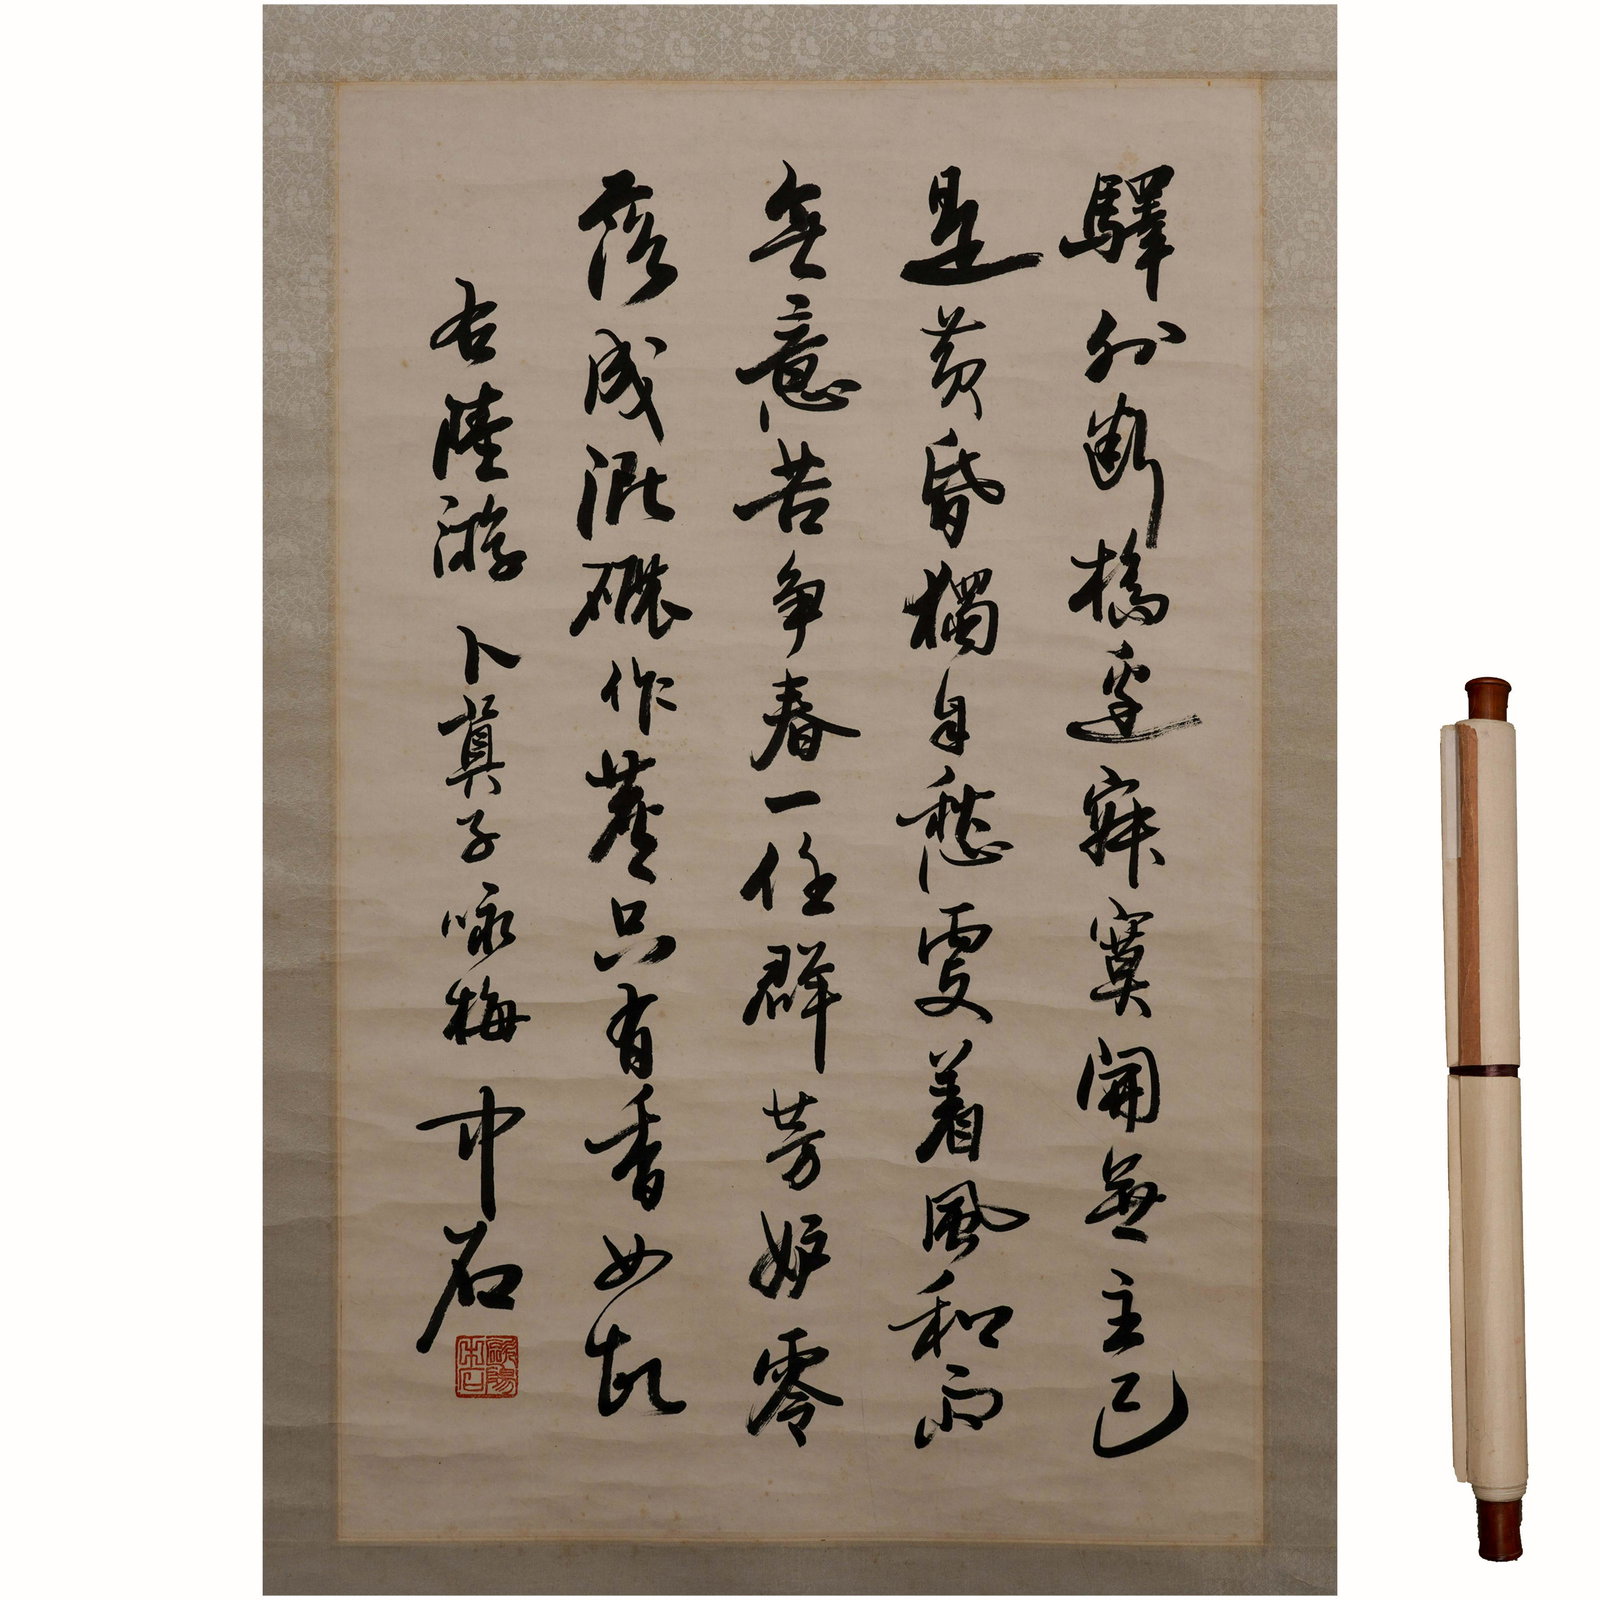 驛外斷橋邊寂寞開無主已
是黃昏獨自愁更着風和雨
無意苦爭春一任群芳妒零
落成泥碾作塵只有香如故
右陸游卜算子咏梅中石
歐陽中石